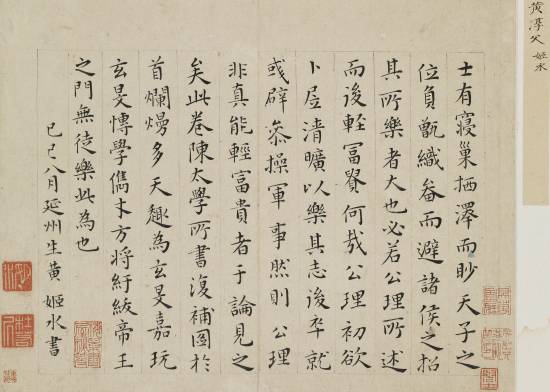 黃淳父 姬水
士有寢巢栖澤而眇天子之
位負甑織畚而避諸侯之招
其所樂者大也必若公理所述
而後輕富貴何哉公理初欲
卜居清曠以樂其志後卒就
彧辟叅操軍事然則公理
非真能輕富貴者于論見之
矣此卷陳太學所書復補圖於
首爛熳多天趣為玄旻嘉玩
玄旻博學儁才方將紆紱帝王
之門無徒樂此為也
己巳八月延州生黃姬水書